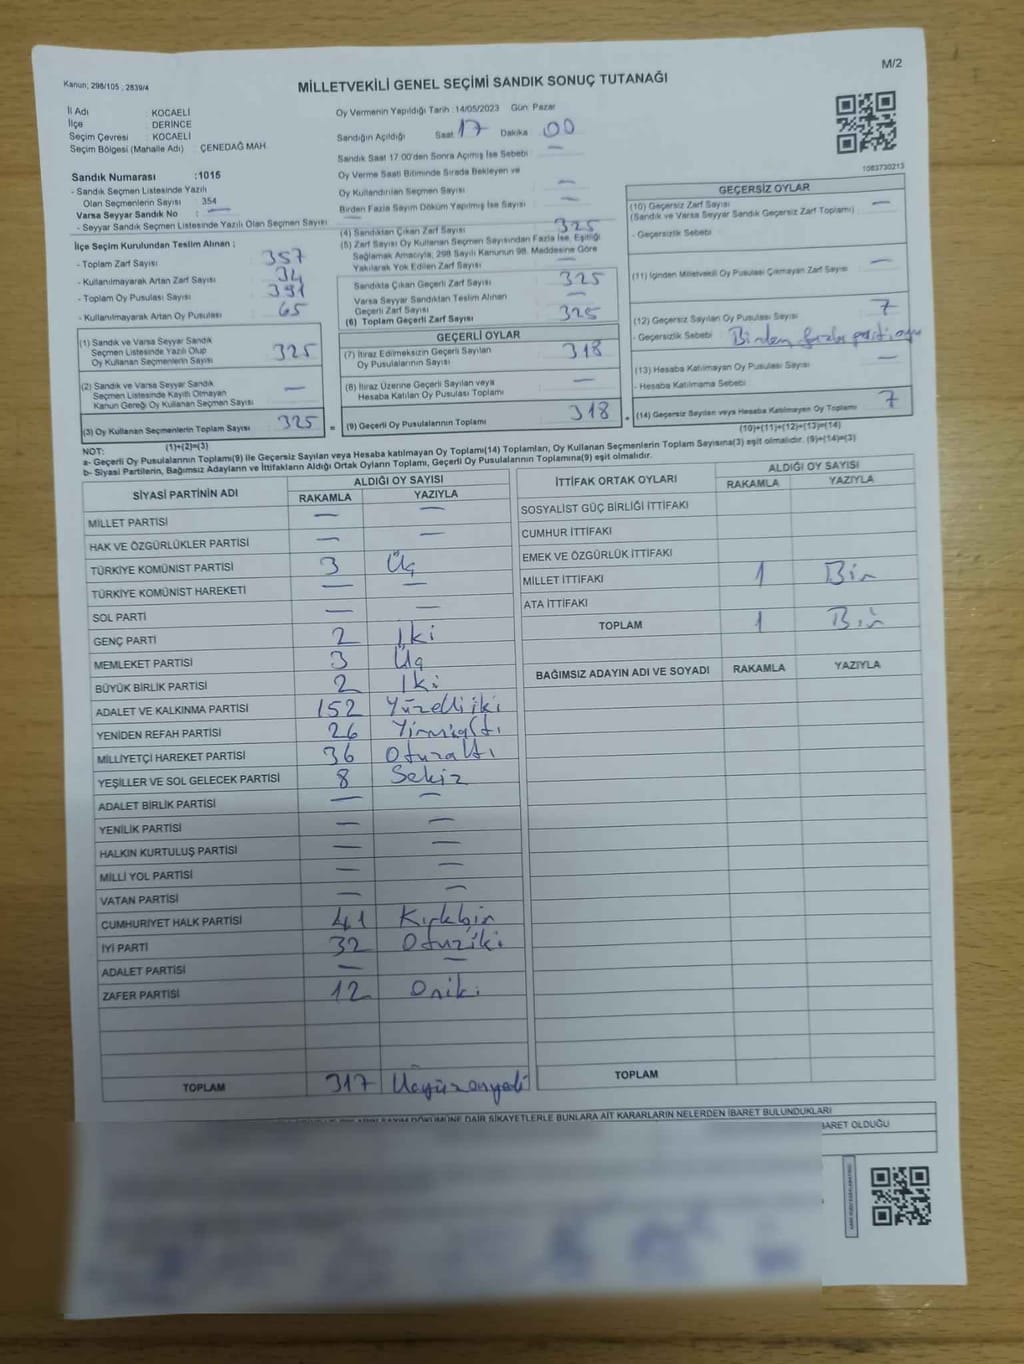 M/2
Kanun; 298/105 , 2839/4
MİLLETVEKİLİ GENEL SEÇİMİ SANDIK SONUÇ TUTANAĞI
İl Adı : KOCAELİ
İlçe : DERİNCE
Seçim Çevresi : KOCAELİ
Seçim Bölgesi (Mahalle Adı) ÇENEDAĞ MAH.
Sandık Numarası :1015
- Sandık Seçmen Listesinde Yazılı
Olan Seçmenlerin Sayısı 354
Varsa Seyyar Sandık No : —
- Seyyar Seçmen Listesinde Yazılı Olan Seçmen Sayısı —
İlçe Seçim Kurulundan Teslim Alınan ;
- Toplam Zarf Sayısı 357
- Kullanılmayarak Artan Zarf Sayısı 34
- Toplam Oy Pusulası Sayısı 391
- Kullanılmayarak Artan Oy Pusulası 65
(1) Sandık ve Varsa Seyyar Sandık
Seçmen Listesinde Yazılı Olup
Oy Kullanan Seçmenlerin Sayısı 325
(2) Sandık ve Varsa Seyyar Sandık
Seçmen Listesinde Kayıtlı Olmayan
Kanun Gereği Oy Kullanan Seçmen Sayısı —
(3) Oy Kullanan Seçmenlerin Toplam Sayısı 325
(1)+(2)=(3)
Oy Vermenin Yapıldığı Tarih :14/05/2023 Gün: Pazar
Sandığın Açıldığı Saat 17 Dakika 00
Sandık Saat 17:00'den Sonra Açılmış İse Sebebi —
Oy Verme Saati Bitiminde Sırada Bekleyen ve
Oy Kullandırılan Seçmen Sayısı —
Birden Fazla Sayım Döküm Yapılmış İse Sayısı —
(4) Sandıktan Çıkan Zarf Sayısı 325
(5) Zarf Sayısı Oy Kullanan Seçmen Sayısından Fazla İse, Eşitliği
Sağlamak Amacıyla, 298 Sayılı Kanunun 98. Maddesine Göre
Yakılarak Yok Edilen Zarf Sayısı —
Sandıkta Çıkan Geçerli Zarf Sayısı 325
Varsa Seyyar Sandıktan Teslim Alınan
Geçerli Zarf Sayısı —
(6) Toplam Geçerli Zarf Sayısı 325
GEÇERLİ OYLAR
(7) İtiraz Edilmeksizin Geçerli Sayılan
Oy Pusulalarının Sayısı 318
(8) İtiraz Üzerine Geçerli Sayılan veya
Hesaba Katılan Oy Pusulası Toplamı —
= (9) Geçerli Oy Pusulalarının Toplamı 318
1083730213
GEÇERSİZ OYLAR
(10) Geçersiz Zarf Sayısı —
(Sandık ve Varsa Seyyar Sandık Geçersiz Zarf Toplamı)
- Geçersizlik Sebebi
(11) İçinden Milletvekili Oy Pusulası Çıkmayan Zarf Sayısı —
(12) Geçersiz Sayılan Oy Pusulası Sayısı 7
- Geçersizlik Sebebi Birden fazla parti oyu
(13) Hesaba Katılmayan Oy Pusulası Sayısı —
- Hesaba Katılmama Sebebi
+ (14) Geçersiz Sayılan veya Hesaba Katılmayan Oy Toplamı 7
(10)+(11)+(12)+(13)=(14)
NOT:
a- Geçerli Oy Pusulalarının Toplamı(9) ile Geçersiz Sayılan veya Hesaba katılmayan Oy Toplamı(14) Toplamları, Oy Kullanan Seçmenlerin Toplam Sayısına(3) eşit olmalıdır. (9)+(14)=(3)
b- Siyasi Partilerin, Bağımsız Adayların ve İttifakların Aldığı Ortak Oyların Toplamı, Geçerli Oy Pusulalarının Toplamına(9) eşit olmalıdır.
SİYASİ PARTİNİN ADI ALDIĞI OY SAYISI
RAKAMLA YAZIYLA
MİLLET PARTİSİ — —
HAK VE ÖZGÜRLÜKLER PARTİSİ — —
TÜRKİYE KOMÜNİST PARTİSİ 3 Üç
TÜRKİYE KOMÜNİST HAREKETİ — —
SOL PARTİ — —
GENÇ PARTİ 2 İki
MEMLEKET PARTİSİ 3 Üç
BÜYÜK BİRLİK PARTİSİ 2 İki
ADALET VE KALKINMA PARTİSİ 152 Yüzelliiki
YENİDEN REFAH PARTİSİ 26 Yirmialtı
MİLLİYETÇİ HAREKET PARTİSİ 36 Otuzaltı
YEŞİLLER VE SOL GELECEK PARTİSİ 8 Sekiz
ADALET BİRLİK PARTİSİ — —
YENİLİK PARTİSİ — —
HALKIN KURTULUŞ PARTİSİ — —
MİLLİ YOL PARTİSİ — —
VATAN PARTİSİ — —
CUMHURİYET HALK PARTİSİ 41 Kırkbir
İYİ PARTİ 32 Otuziki
ADALET PARTİSİ — —
ZAFER PARTİSİ 12 Oniki
TOPLAM 317 Üçyüzonyedi
İTTİFAK ORTAK OYLARI ALDIĞI OY SAYISI
RAKAMLA YAZIYLA
SOSYALİST GÜÇ BİRLİĞİ İTTİFAKI
CUMHUR İTTİFAKI
EMEK VE ÖZGÜRLÜK İTTİFAKI
MİLLET İTTİFAKI 1 Bir
ATA İTTİFAKI
TOPLAM 1 Bir
BAĞIMSIZ ADAYIN ADI VE SOYADI RAKAMLA YAZIYLA
TOPLAM
DÖKÜMÜNE DAİR ŞİKAYETLERLE BUNLARA AİT KARARLARIN NELERDEN İBARET BULUNDUKLARI
BARET OLDUĞU